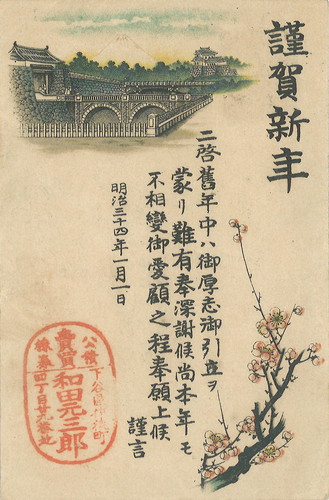 謹賀新年
二啓舊年中ハ御厚志御引立ヲ
蒙リ難有奉深謝候尚本年モ
不相變御愛顧之程奉願上候
謹言
明治三十四年一月一日
公債
賣買
下谷區仲徒町
和田元三郎
四丁目
番地